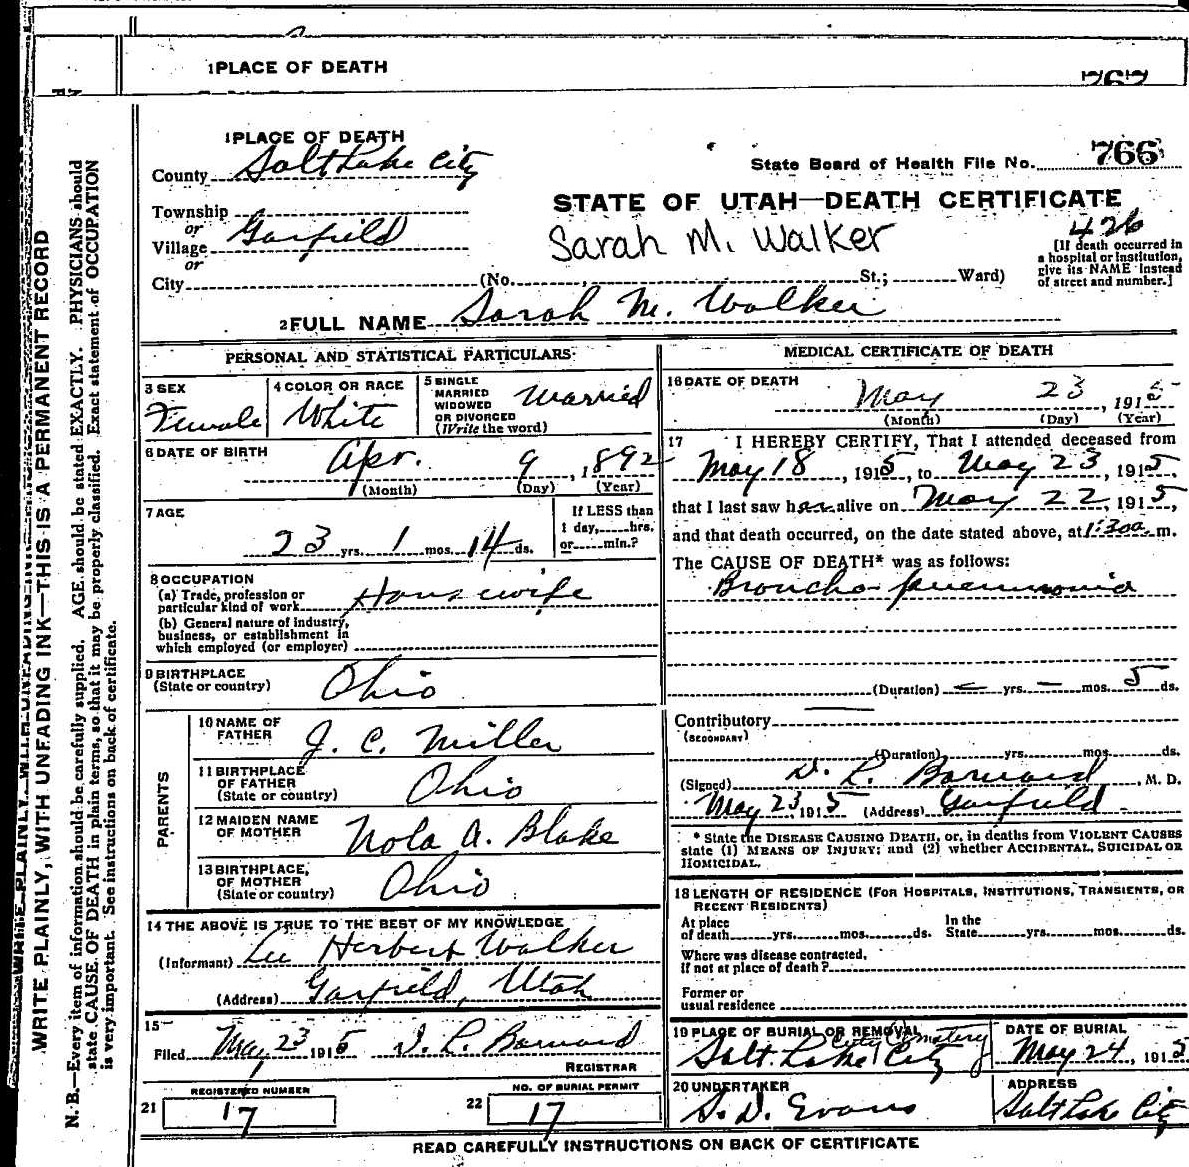 1 PLACE OF DEATH
767
1 PLACE OF DEATH
County Salt Lake City
Township
or
Village Garfield
or
City (No. St.; Ward)
State Board of Health File No. 766
STATE OF UTAH—DEATH CERTIFICATE
Sarah M. Walker
426
[If death occurred in
a hospital or institution,
give its NAME instead
of street and number.]
2 FULL NAME Sarah M. Walker
PERSONAL AND STATISTICAL PARTICULARS
3 SEX
Female
4 COLOR OR RACE
White
5 SINGLE
MARRIED
WIDOWED
OR DIVORCED
(Write the word)
Married
6 DATE OF BIRTH
Apr. 9, 1892
(Month) (Day) (Year)
7 AGE
23 yrs. 1 mos. 14 ds.
If LESS than
1 day, hrs.
or min.?
8 OCCUPATION
(a) Trade, profession or
particular kind of work Housewife
(b) General nature of industry,
business, or establishment in
which employed (or employer)
9 BIRTHPLACE
(State or country) Ohio
PARENTS
10 NAME OF
FATHER J. C. Miller
11 BIRTHPLACE
OF FATHER
(State or country) Ohio
12 MAIDEN NAME
OF MOTHER Nola A. Blake
13 BIRTHPLACE,
OF MOTHER
(State or country) Ohio
14 THE ABOVE IS TRUE TO THE BEST OF MY KNOWLEDGE
(Informant) Lee Herbert Walker
(Address) Garfield, Utah
15
Filed May 23 1915 D. L. Barnard
REGISTRAR
REGISTERED NUMBER
21 17
NO. OF BURIAL PERMIT
22 17
MEDICAL CERTIFICATE OF DEATH
16 DATE OF DEATH
May 23, 1915
(Month) (Day) (Year)
17 I HEREBY CERTIFY, That I attended deceased from
May 18, 1915, to May 23, 1915,
that I last saw her alive on May 22, 1915,
and that death occurred, on the date stated above, at 1:30 a m.
The CAUSE OF DEATH* was as follows:
Broncho pneumonia
(Duration) – yrs. – mos. 5 ds.
Contributory
(SECONDARY)
(Duration) yrs. mos. ds.
(Signed) D. L. Barnard, M. D.
May 23, 1915 (Address) Garfield
* State the DISEASE CAUSING DEATH, or, in deaths from VIOLENT CAUSES
state (1) MEANS OF INJURY; and (2) whether ACCIDENTAL, SUICIDAL OR
HOMICIDAL.
18 LENGTH OF RESIDENCE (FOR HOSPITALS, INSTITUTIONS, TRANSIENTS, OR
RECENT RESIDENTS)
At place
of death yrs. mos. ds.
In the
State yrs. mos. ds.
Where was disease contracted,
if not at place of death?
Former or
usual residence
19 PLACE OF BURIAL OR REMOVAL
City Cemetery
Salt Lake City
DATE OF BURIAL
May 24, 1915
20 UNDERTAKER
S. D. Evans
ADDRESS
Salt Lake City
READ CAREFULLY INSTRUCTIONS ON BACK OF CERTIFICATE
WRITE PLAINLY, WITH UNFADING INK—THIS IS A PERMANENT RECORD
N. B.—Every item of information should be carefully supplied. AGE should be stated EXACTLY. PHYSICIANS should
state CAUSE OF DEATH in plain terms, so that it may be properly classified. Exact statement of OCCUPATION
is very important. See instructions on back of certificate.